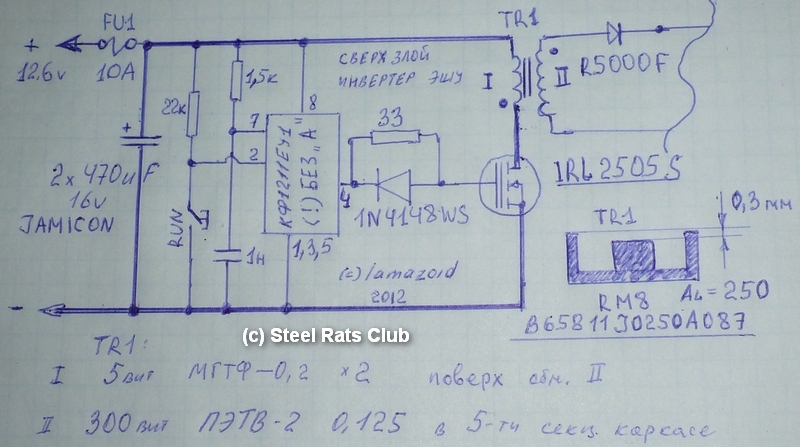 FU1
TR1
+
12.6v
10A
1,5к
СВЕРХ ЗЛОЙ
ИНВЕРТЕР ЭШУ
I
II
R5000F
22к
7
8
2
КФ1211ЕУ1
(!) БЕЗ „А"
33
4
1N4148WS
IRL2505S
2 x 470uF
16v
JAMICON
RUN
1н
1,3,5
(=) lamazoid
2012
TR1
0,3 мм
RM8
AL=250
B65811J0250A087
-
(c) Steel Rats Club
TR1:
I 5 вит МГТФ-0,2 x2 поверх обм. II
II 300 вит ПЭТВ-2 0,125 в 5-ти секц. каркасе